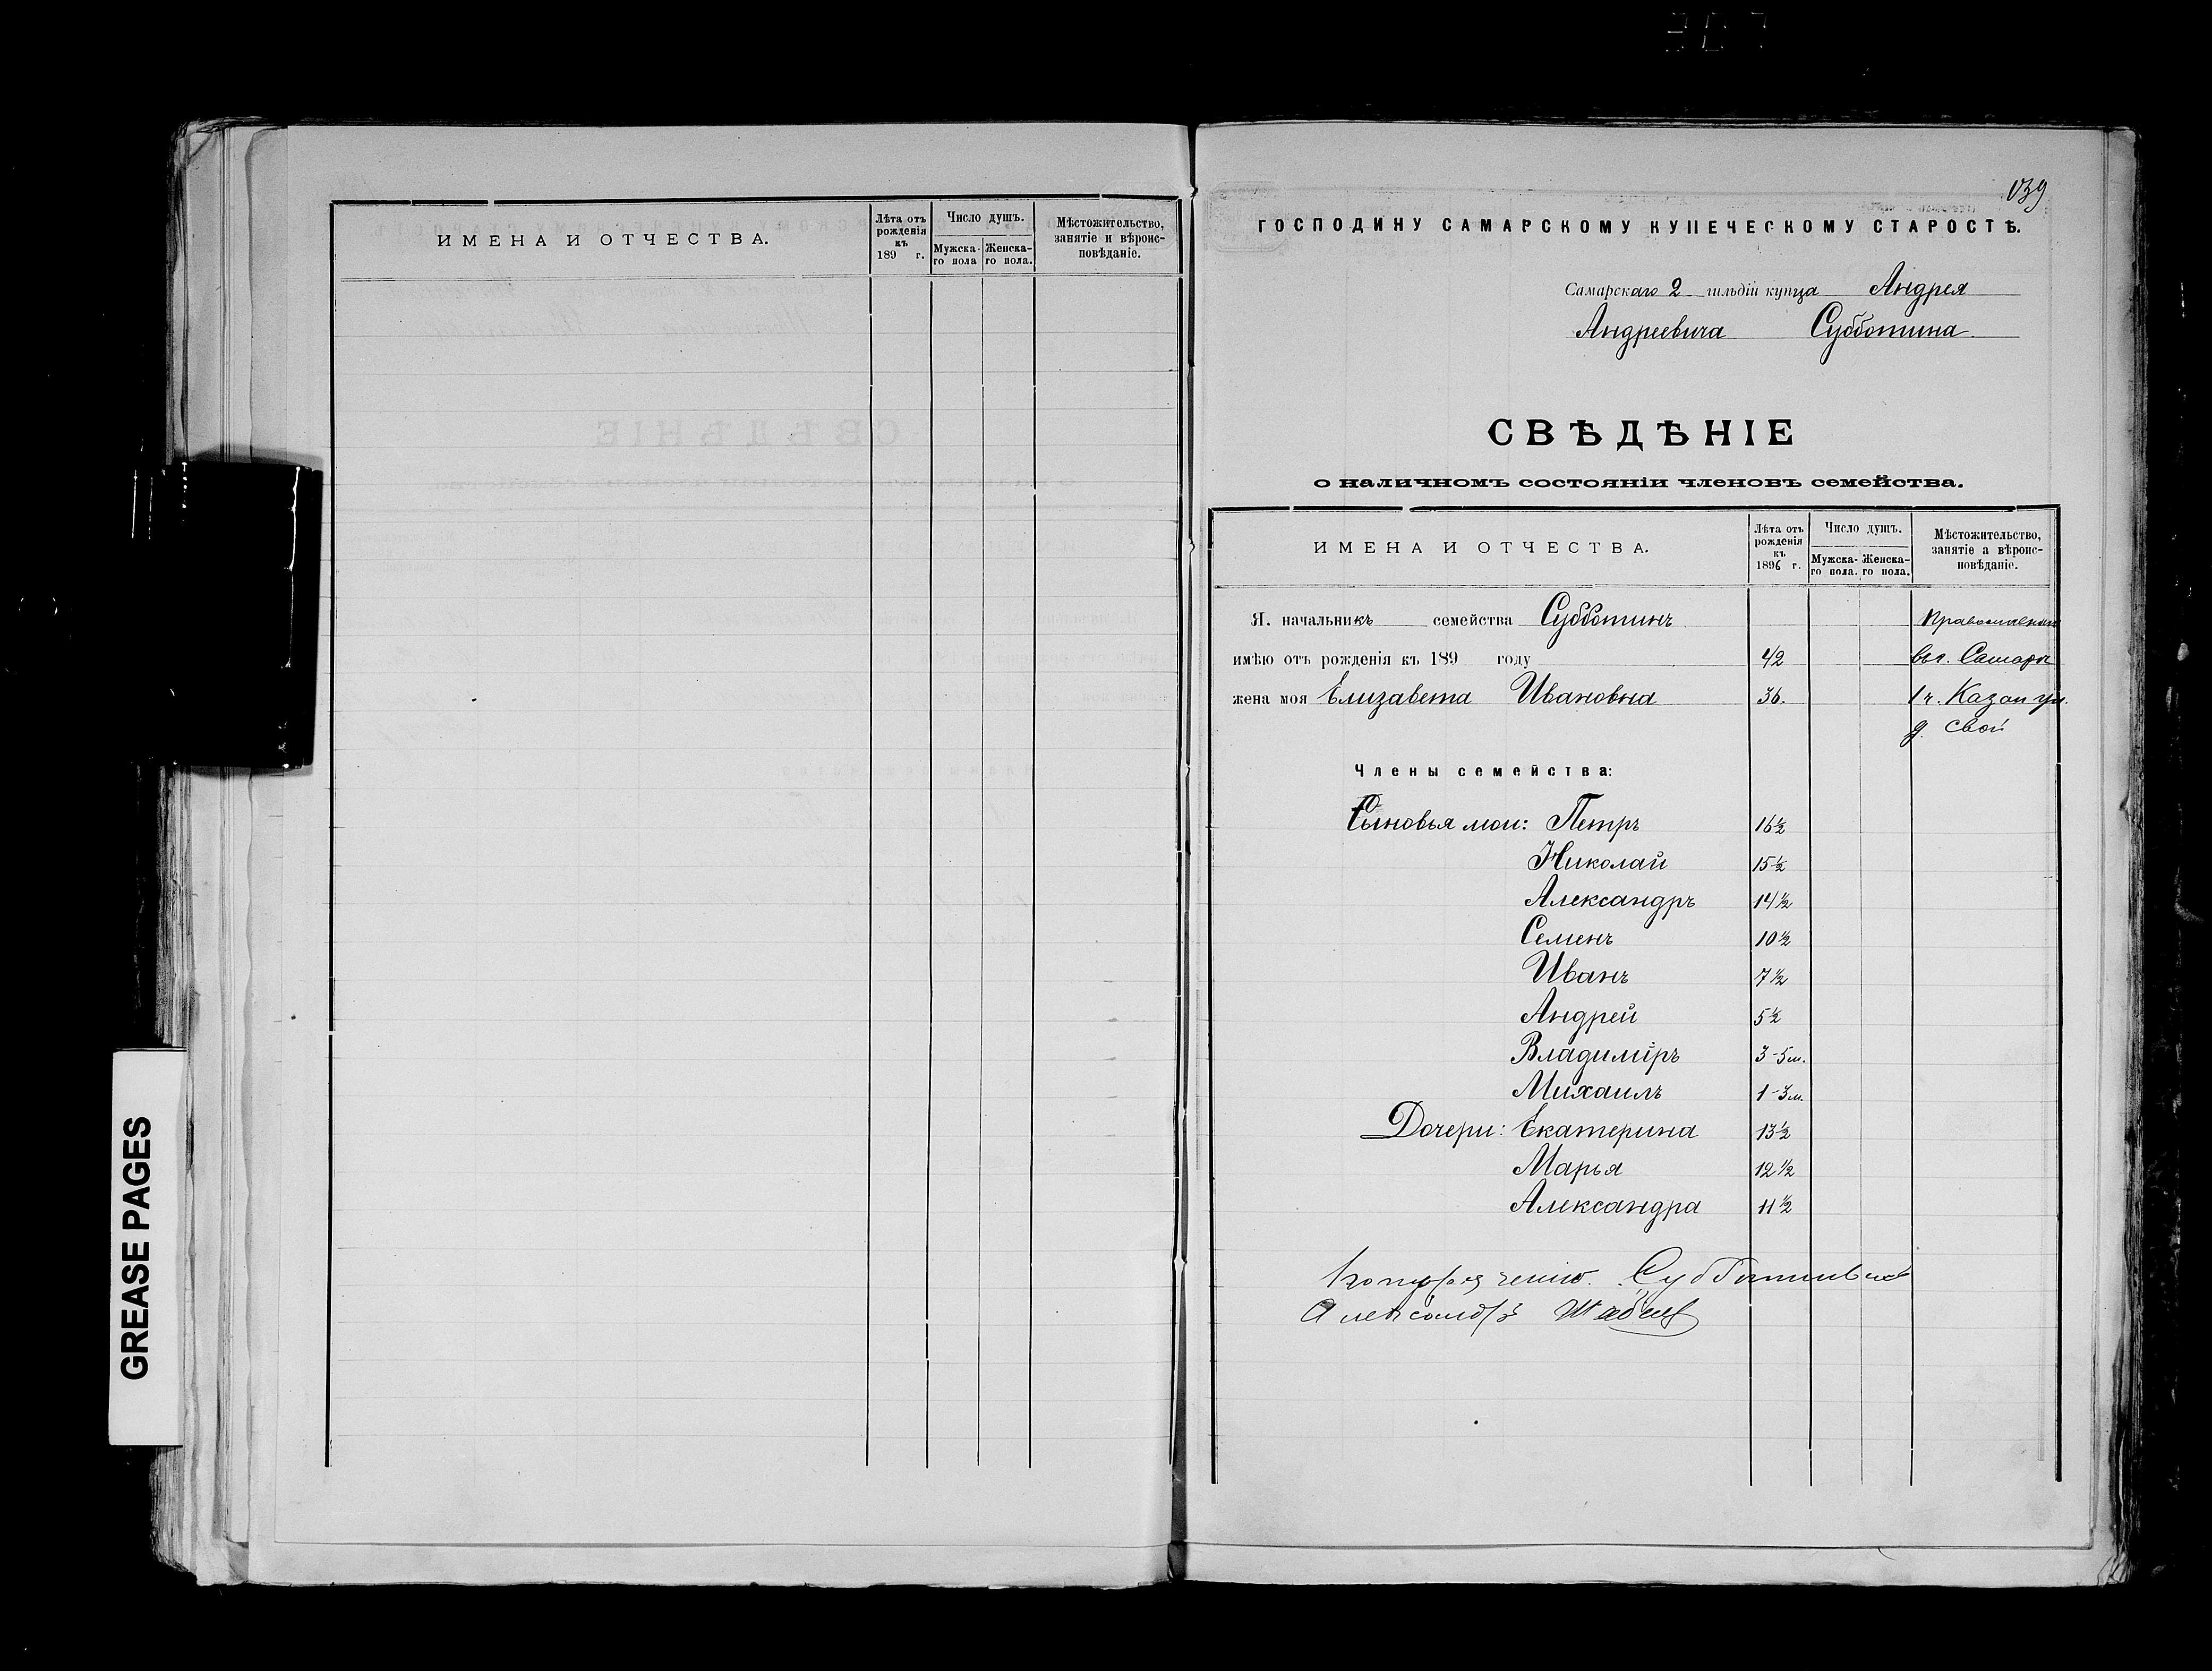 ИМЕНА И ОТЧЕСТВА.
Лѣта отъ рожденія къ 189 г.
Число душъ.
Мужска-го пола
Женска-го пола.
Мѣстожительство, занятіе и вѣроис-повѣданіе.
GREASE PAGES
139
ГОСПОДИНУ САМАРСКОМУ КУПЕЧЕСКОМУ СТАРОСТѢ.
Самарскаго 2 гильдіи купца Андрея
Андреевича Субботина
СВѢДѢНІЕ
о наличномъ состояніи членовъ семейства.
ИМЕНА И ОТЧЕСТВА.
Лѣта отъ рожденія къ 1896 г.
Число душъ.
Мужска-го пола.
Женска-го пола.
Мѣстожительство, занятіе а вѣроис-повѣданіе.
Я. начальникъ семейства Субботинъ
имѣю отъ рожденія къ 189 году 42 въ г. Самарѣ
жена моя Елизавета Ивановна 36. 1 ч. Казан ул.
д. свой
Члены семейства:
Сыновья мои: Петръ 16½
Николай 15½
Александръ 14½
Семенъ 10½
Иванъ 7½
Андрей 5½
Владиміръ 3-5 м.
Михаилъ 1-3 м.
Дочери: Екатерина 13½
Марья 12½
Александра 11½
Александръ